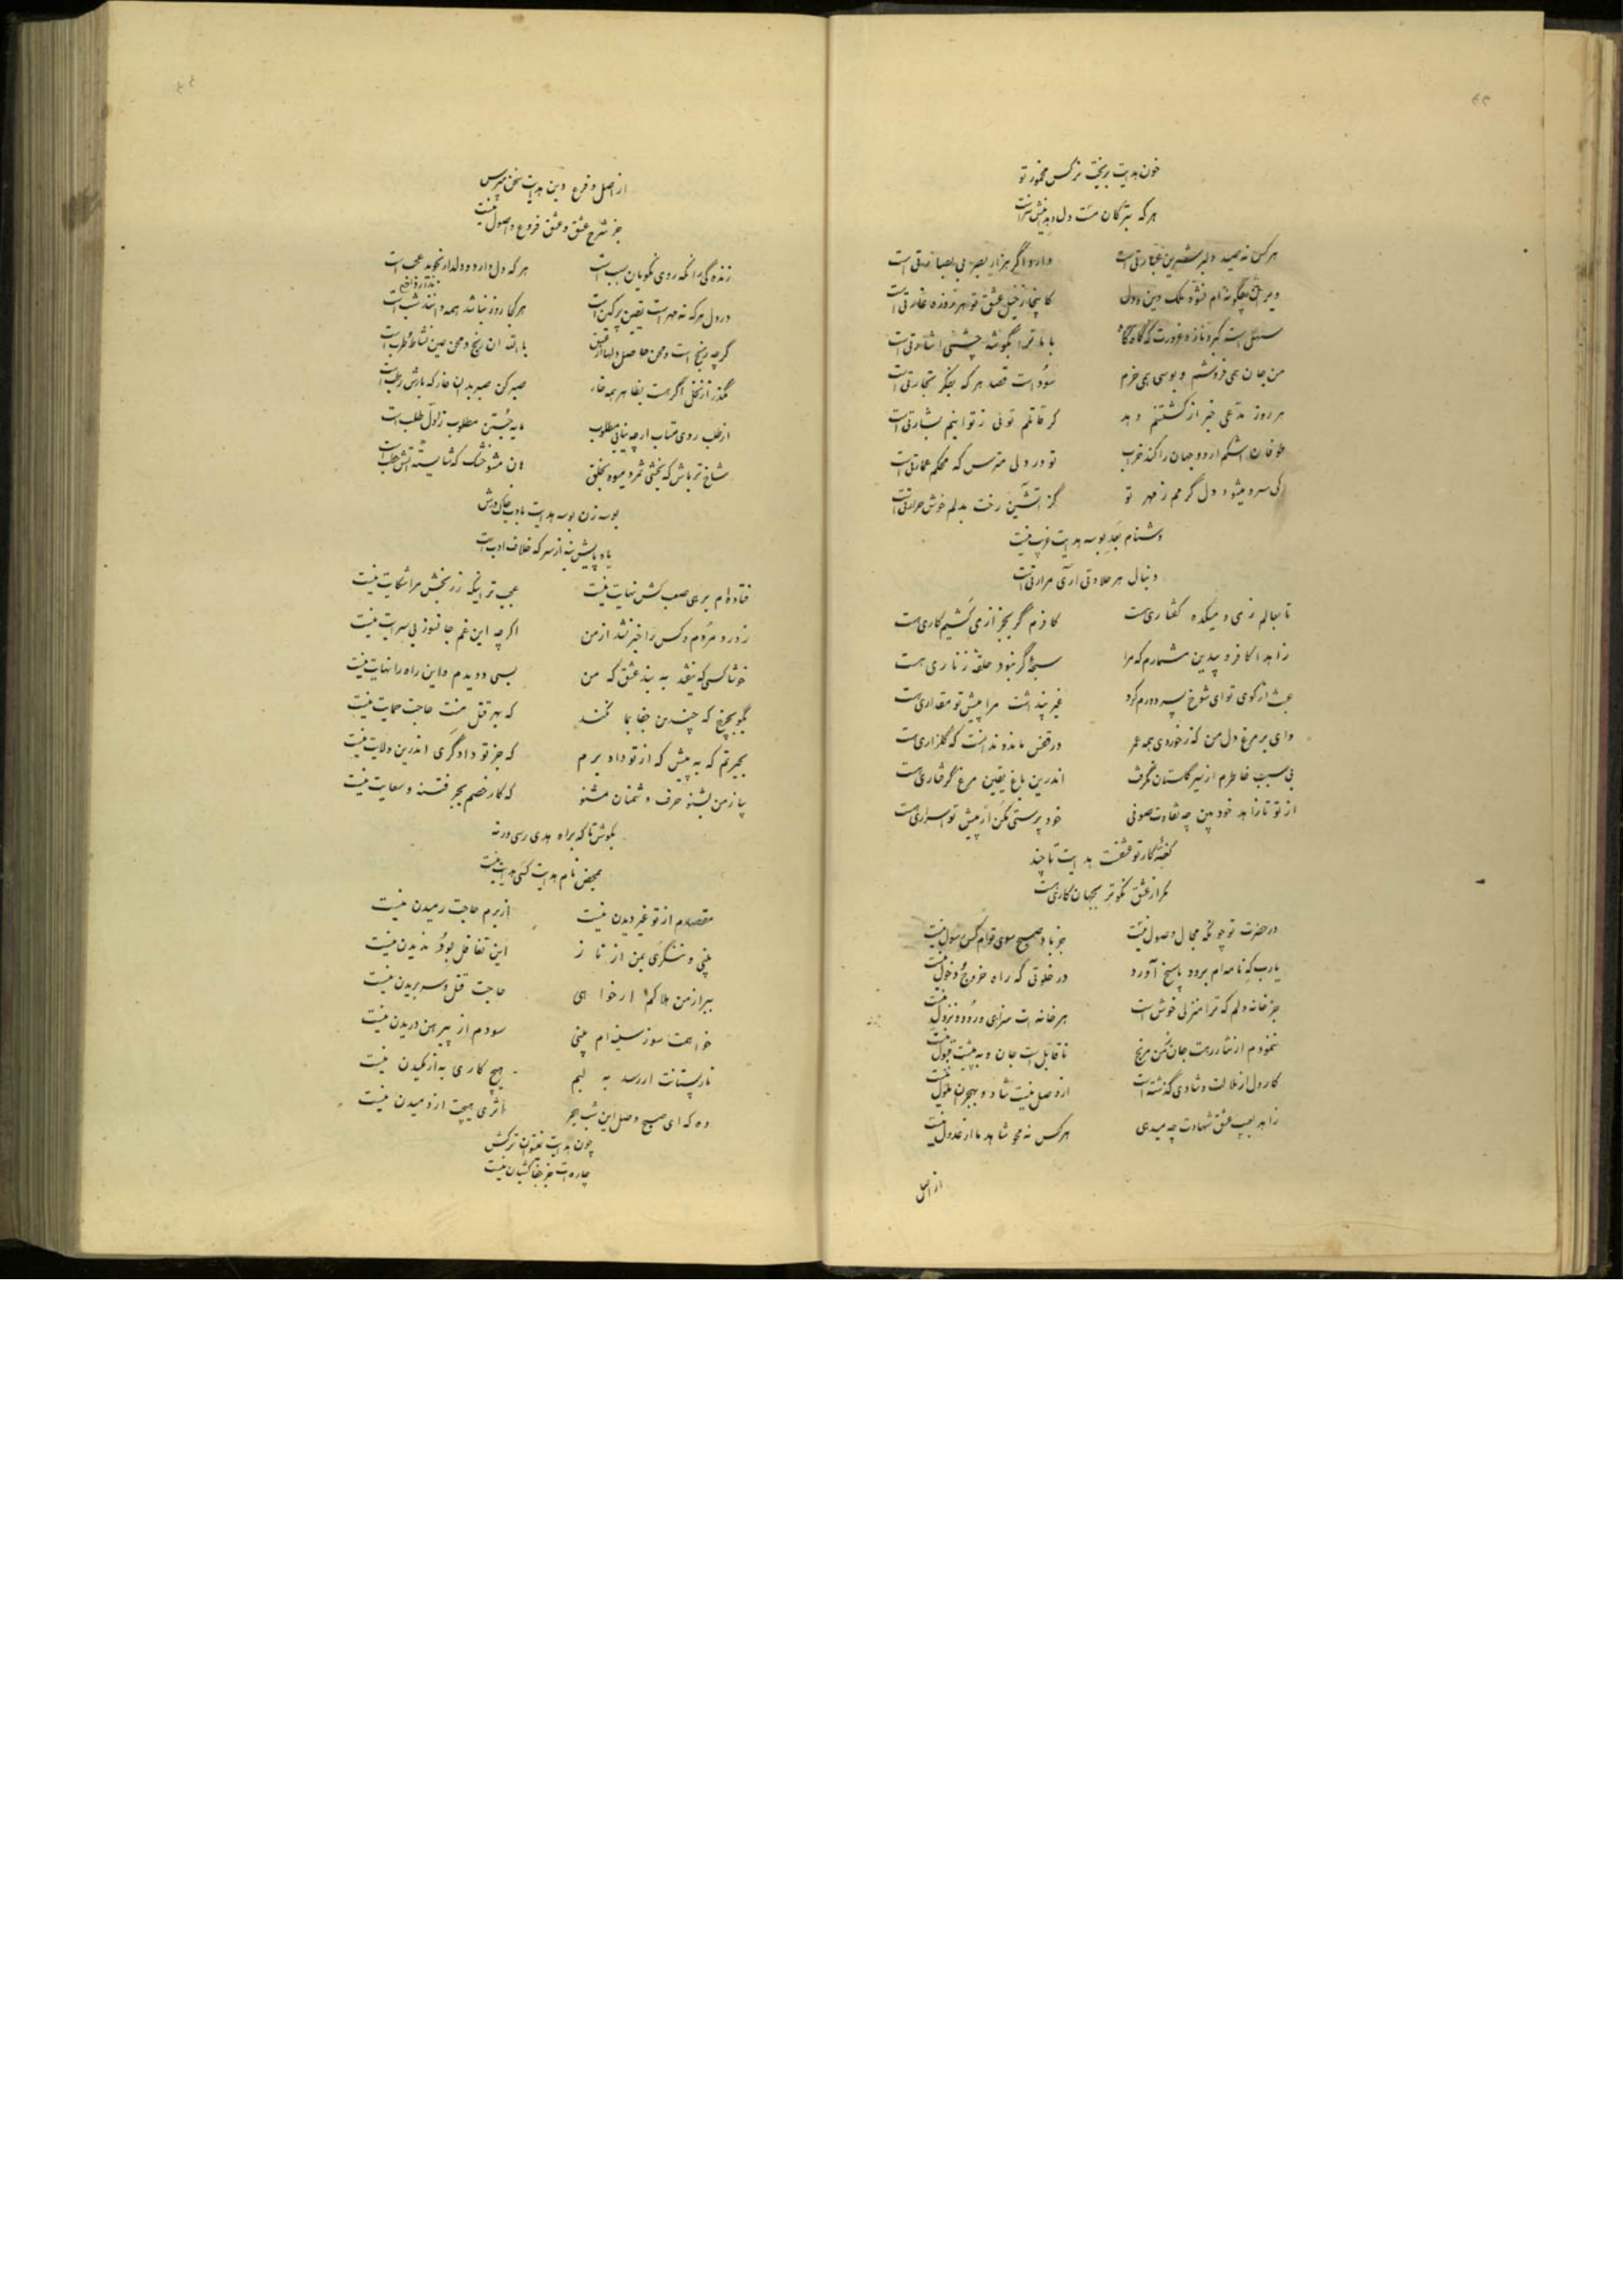 خون هدایت بریخت نرگس مخمور تو
هرکه بترکان مست دل دهد اینش سزاست
هرکس نه صید دلبر شیرین عبارتی است
دارد اگر هزار بصر بی بصارتی است
ویران چگونه ام نشود ملک دین و دل
کانجا ز خیل عشق تو هر روزه غارتی است
سهل است کبر و ناز و غرورت که گاه گاه
با ما ترا بگوشه چشمی اشارتی است
من جان همی فروشم و بوسی همی خرم
سود است قصد هر که بفکر تجارتی است
هر روز مدعی خبر از کشتنم دهد
گر قاتلم توئی ز تو اینم بشارتی است
طوفان اشکم ار دو جهان را کند خراب
تو در دلی مترس که محکم عمارتی است
کی سرد میشود دل گرمم ز مهر تو
کز آتشین رخت بدلم خوش حرارتی است
دشنام بعد بوسه هدایت غریب نیست
دنبال هر حلاوتی آری مرارتی است
تا بعالم ز می و میکده گفتاری هست
کافرم گر بجز از می کشیم کاری هست
زاهدا کافر و بیدین مشمارم که مرا
سبحه گر نبود حلقه زناری هست
عبث از کوی تو ای شوخ پسر دورم کرد
غیر پنداشت مرا پیش تو مقداری هست
وای بر مرغ دل من که ز خوردی همه عمر
در قفس مانده ندانست که گلزاری هست
بی سبب خاطرم از سیر گلستان نگرفت
اندرین باغ یقین مرغ گرفتاری هست
از تو تا زاهد خودبین چه تفاوت صوفی
خود پرستی مکن ار پیش تو اسراری هست
گفته کار تو عشقست هدایت تا چند
مگر از عشق نکوتر بجهان کاری هست
در حضرت تو چونکه مجال وصول نیست
جز باد صبح سوی توام کس رسول نیست
یارب که نامه ام برد و پاسخ آورد
در خلوتی که راه خروج و دخول نیست
جز خانه دلم که ترا منزلی خوش است
هر خانه ات سزای ورود و نزول نیست
ننمودم ار نثار رهت جان ز من مرنج
ناقابل است جان و به پیشت قبول نیست
کار دل از ملالت و شادی گذشته است
از وصل نیست شاد و بهجرن ملول نیست
زاهد بعیب عشق شهادت چه میدهی
هرکس نه محو شاهد ما از عدول نیست
از اصل
از اصل و فرع دین هدایت سخن مپرس
جز شرح عشق و عشق فروع و اصول نیست
زنده گی را نکه روی نکویان سبب است
هر که دل دارد و دلدار نجوید عجب است
در دل هرکه نه مهر است یقین پر کین است
هر کجا روز نباشد همه دانند شب است
گرچه رنج است و محن حاصل دلها از عشق
بالله آن رنج و محن عین نشاط و طرب است
مگذر از نخل اگر هست بظاهر همه خار
صبر کن صبر بدان خار که بارش رطب است
از طلب روی متاب ار چه نیابی مطلوب
مایه جستن مطلوب ز اول طلب است
شاخ تر باش که بخشی ثمر و میوه بخلق
نه مشو خشک که شایسته آتش حطب است
بوسه زن بوسه هدایت بادب خاک درش
یا پایش نه از سر که خلاف ادب است
فتاده ام برهی صعب کش نهایت نیست
عجب تر اینکه ز رنجش مرا شکایت نیست
ز درد مردم و کس را خبر نشد از من
اگرچه این غم جانسوز بی سرایت نیست
خوشا کسی که نیفتد به بند عشق که من
بسی دویدم و این راه را نهایت نیست
بگو بچرخ که چندین جفا بما نکند
که بهر قتل منت حاجت حمایت نیست
بحیرتم که به پیش که از تو داد برم
که جز تو دادگری اندرین ولایت نیست
بیا ز من بشنو حرف دشمنان مشنو
که کار خصم بجز فتنه و سعایت نیست
بکوش تا که براه هدی رسی ورنه
بمحض نام هدایت کسی هدایت نیست
مقصدم از تو غیر دیدن نیست
از برم حاجت رمیدن نیست
بینی و ننگری بمن از ناز
این تغافل بود ندیدن نیست
ببر از من هلاکم ار خواهی
حاجت قتل و سر بریدن نیست
خواهمت سوز سینه ام بینی
سودم از پیرهن دریدن نیست
نار پستانت ار رسد به لبم
هیچ کاری به از مکیدن نیست
وه که ای صبح وصل این شب هجر
اثری هیچت از دمیدن نیست
چون هدایت نتوان ترکش
چاره ات جز جفا کشیدن نیست